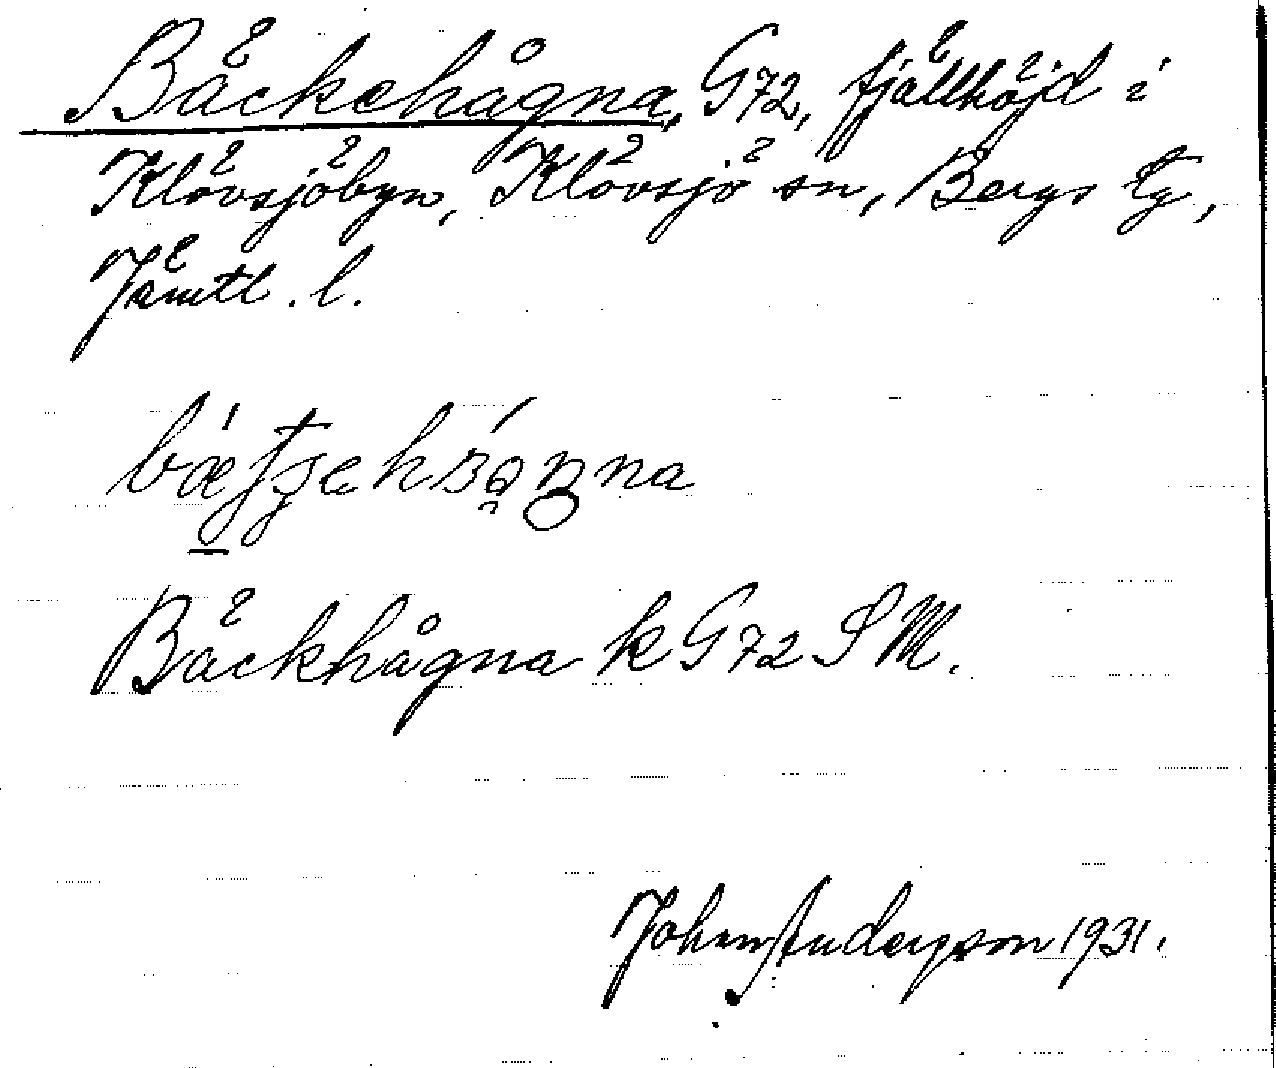 Bäckehågna, G72, fjällhöjd i
Klövsjöbyn, Klövsjö sn, Bergs tg,
Jämtl. l.
Bäckhågna k G72 S M.
John Andersson 1931.